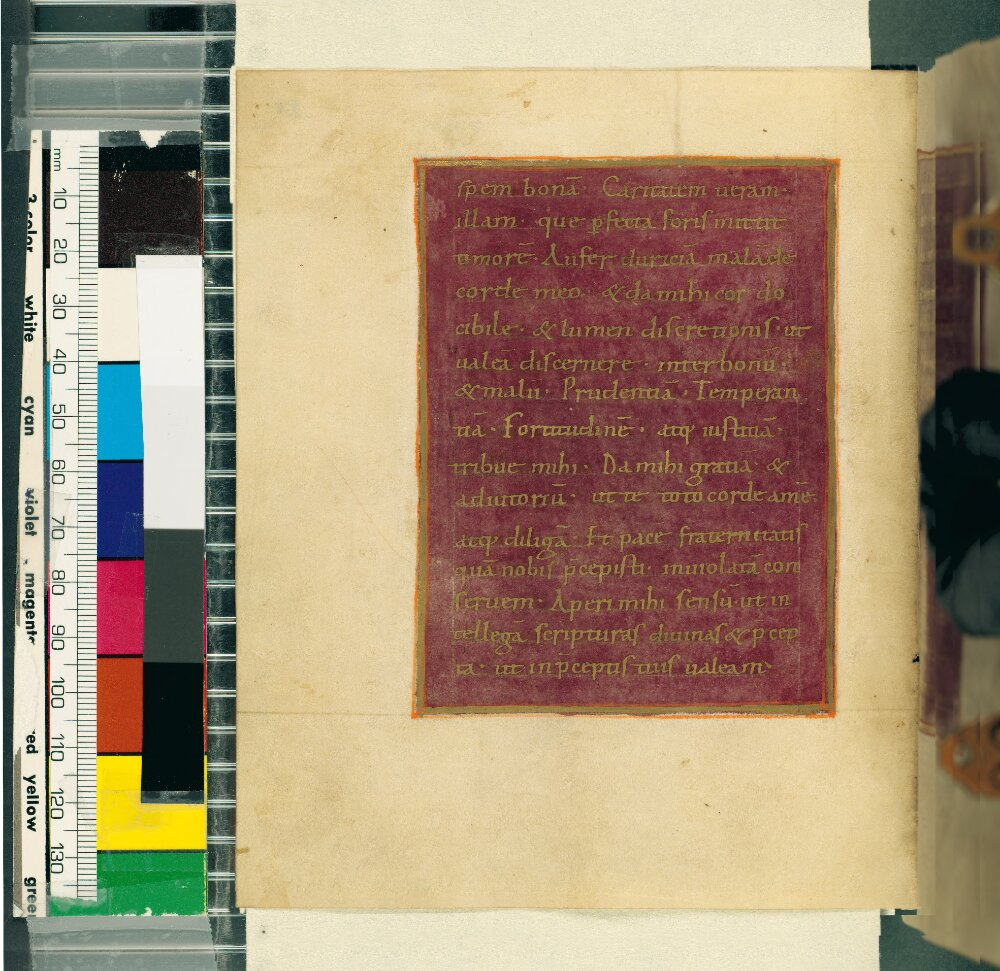 mm 10 20 30 40 50 60 70 80 90 100 110 120 130
white cyan violet magent ed yellow gree
spem bonā · Caritatem ueram ·
illam · que ꝑfecta foris mittit
timorē · Aufer duriciā malā de
corde meo · & da mihi cor do
cibile · & lumen discretionis · ut
ualeā discernere · inter bonū ·
& malū · Prudentiā · Temperan
tiā · Fortitudinē · atq; iustitiā ·
tribue mihi · Da mihi gratiā · &
adiutoriū · ut te toto corde amē ·
atq; diligā · Et pace fraternitatis
quā nobis p̄cepisti · inuiolatā con
seruem · Aperi mihi sensū · ut in
tellegā scripturas diuinas & p̄cep
ta · ut in p̄ceptis tuis ualeam ·